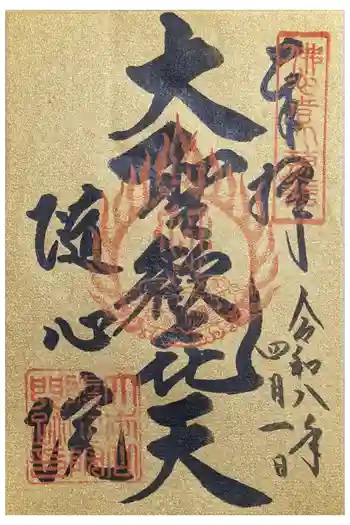 奉拝
令和八年
四月一日
大聖歓喜天
随心院